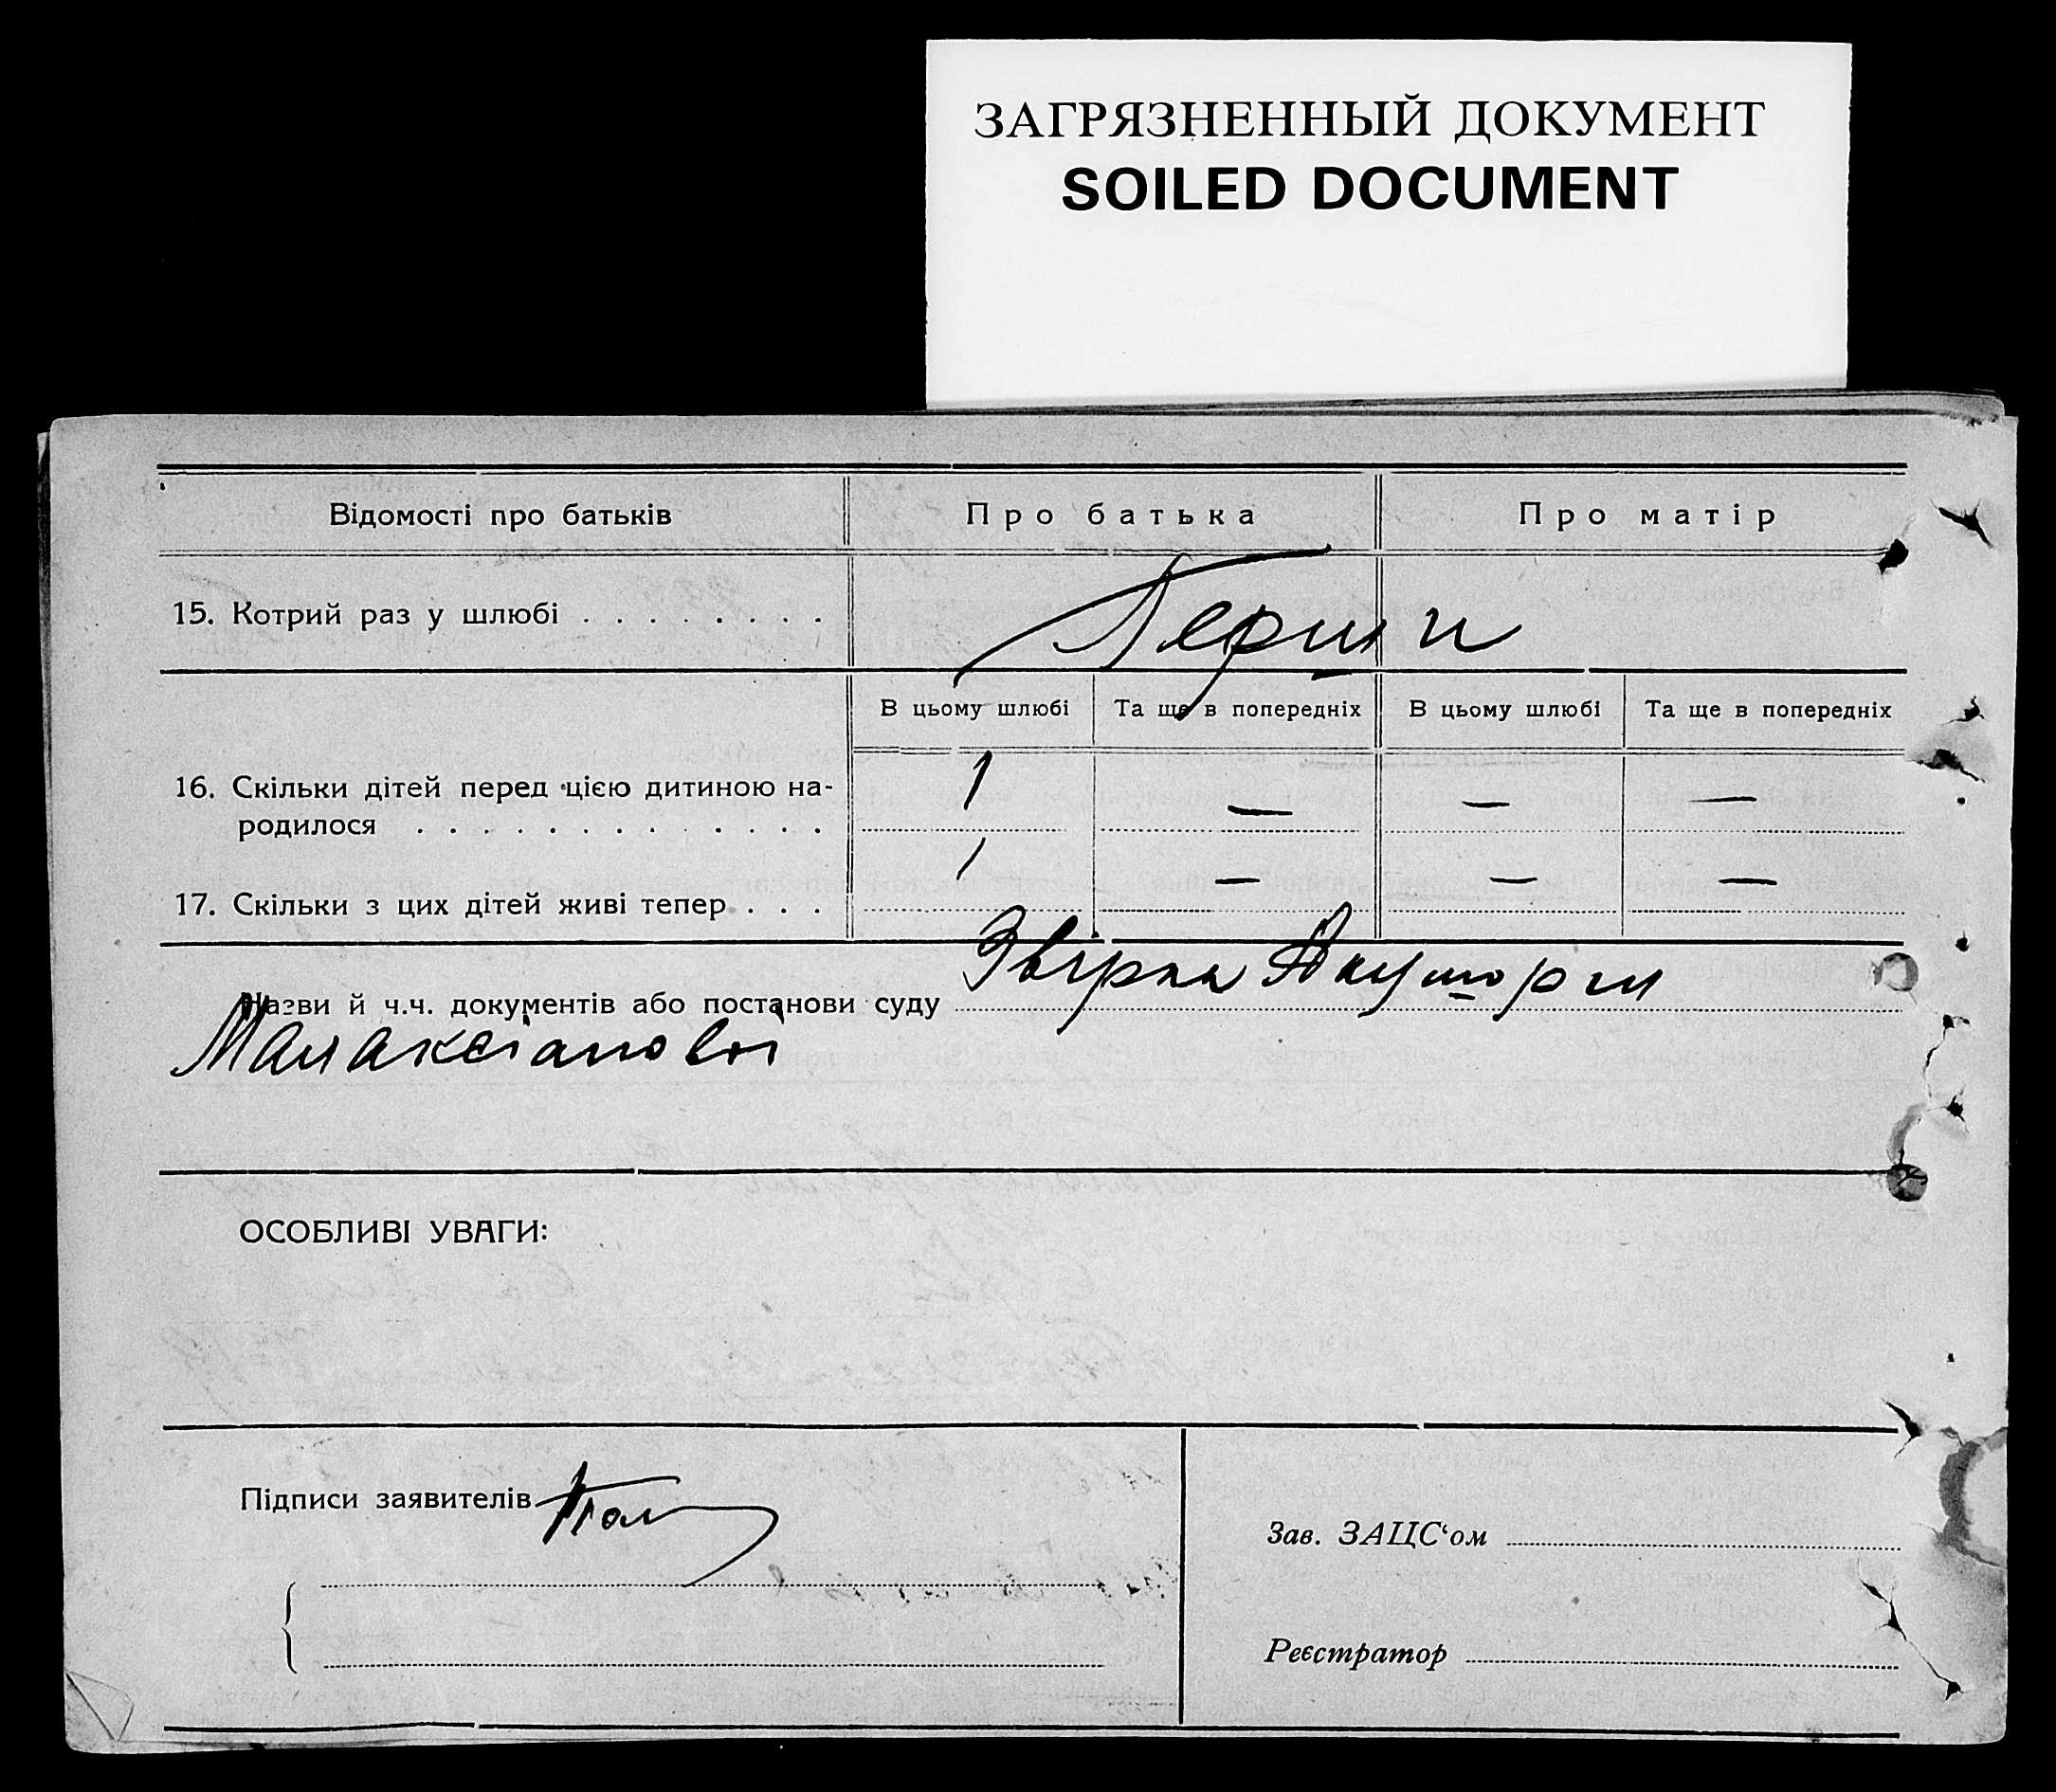 ЗАГРЯЗНЕННЫЙ ДОКУМЕНТ
SOILED DOCUMENT
Відомості про батьків Про батька Про матір
15. Котрий раз у шлюбі . . . . . . . . Перши
В цьому шлюбі Та ще в попередніх В цьому шлюбі Та ще в попередніх
16. Скільки дітей перед цією дитиною на- 1 — — —
родилося . . . . . . . . . . . . .
17. Скільки з цих дітей живі тепер . . . 1 — — —
Назви й ч.ч. документів або постанови суду
ОСОБЛИВІ УВАГИ:
Підписи заявителів
Зав. ЗАЦС‘ом
Реєстратор